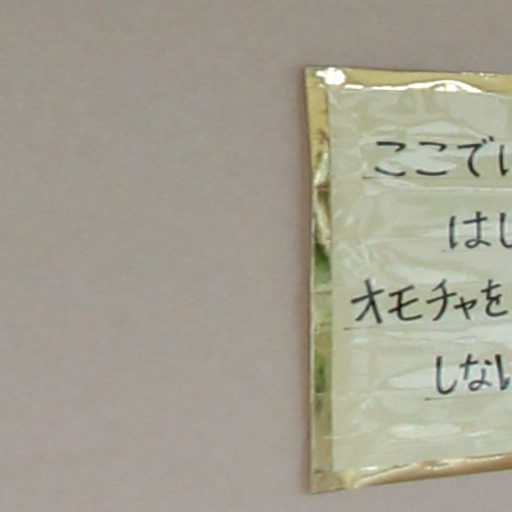 ここで
はし
オモチャを
しない